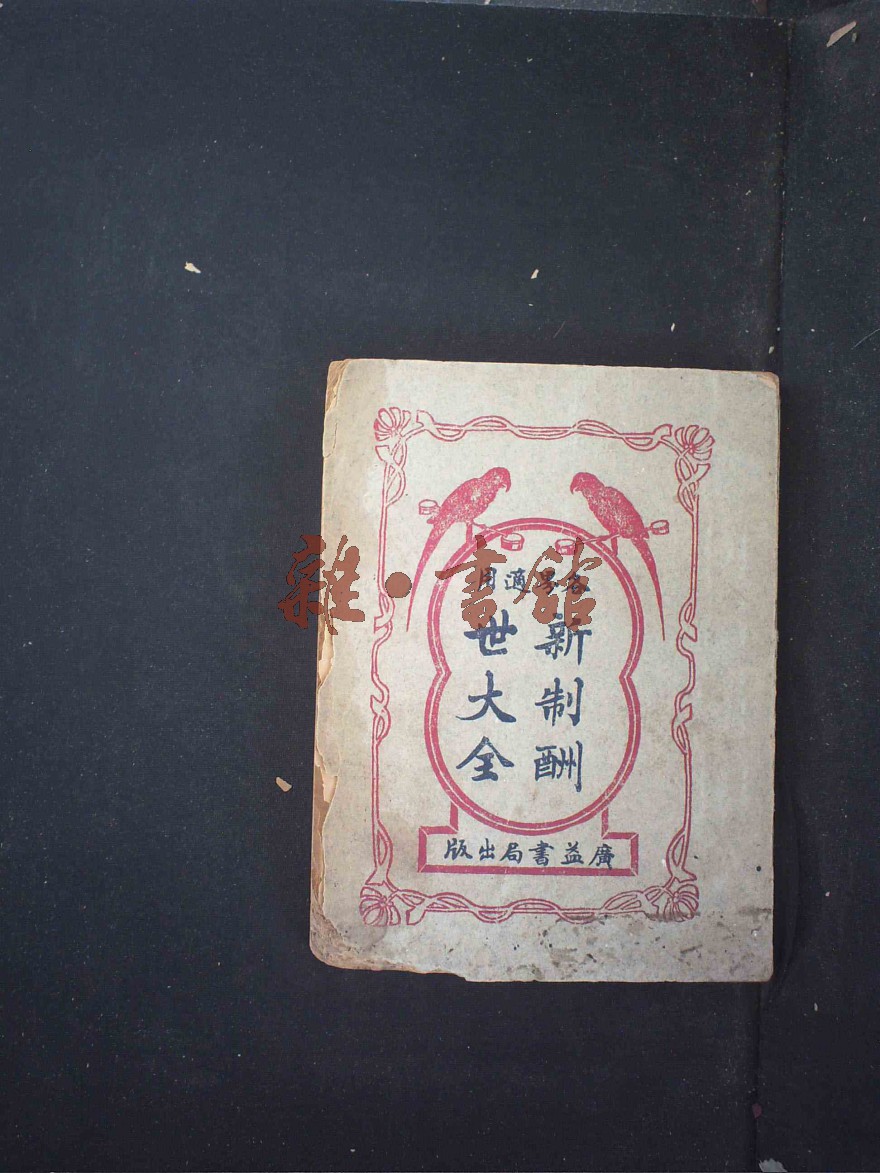 各界適用
新制酬
世大全
廣益書局出版
雜·書館